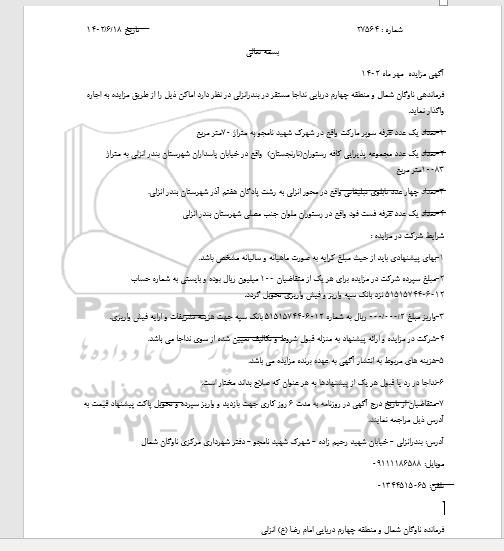 شماره : ۲۷۵۶۴
تاریخ ۱۴۰۲/۶/۱۸
بسمه تعالی
آگهی مزایده مهر ماه ۱۴۰۲
فرماندهی ناوگان شمال و منطقه چهارم دریایی نداجا مستقر در بندرانزلی در نظر دارد اماکن ذیل را از طریق مزایده به اجاره
واگذار نماید.
۱-تعداد یک عدد غرفه سوپر مارکت واقع در شهرک شهید نامجو به متراژ ۷۰متر مربع
۲-تعداد یک عدد مجموعه پذیرایی کافه رستوران(نارنجستان) واقع در خیابان پاسداران شهرستان بندر انزلی به متراژ
۱۰۸۳متر مربع
۳-تعداد چهار عدد تابلوی تبلیغاتی واقع در محور انزلی به رشت پادگان هفتم آذر شهرستان بندر انزلی.
۴-تعداد یک عدد غرفه فست فود واقع در رستوران ملوان جنب مصلی شهرستان بندر انزلی
شرایط شرکت در مزایده :
۱-بهای پیشنهادی باید از حیث مبلغ کرایه به صورت ماهیانه و سالیانه مشخص باشد.
۲-مبلغ سپرده شرکت در مزایده برای هر یک از متقاضیان ۱۰۰ میلیون ریال بوده و بایستی به شماره حساب
۵۱۵۱۵۷۴۴۰۶۰۱۲ نزد بانک سپه واریز و فیش واریزی تحویل گردد.
۳-واریز مبلغ ۲/۰۰۰/۰۰۰ ریال به شماره ۵۱۵۱۵۷۴۴۰۶۰۱۲ بانک سپه جهت هزینه تشریفات و ارایه فیش واریزی.
۴-شرکت در مزایده و ارائه پیشنهاد به منزله قبول شروط و تکالیف تعیین شده از سوی نداجا می باشد.
۵-هزینه های مربوط به انتشار آگهی به عهده برنده مزایده می باشد.
۶-نداجا در رد یا قبول هر یک از پیشنهادها به هر عنوان که صلاح بداند مختار است.
۷-متقاضیان از تاریخ درج آگهی در روزنامه به مدت ۶ روز کاری جهت بازدید و واریز سپرده و تحویل پاکت پیشنهاد قیمت به
آدرس ذیل مراجعه نمایند.
آدرس: بندرانزلی – خیابان شهید رحیم زاده – شهرک شهید نامجو – دفتر شهرداری مرکزی ناوگان شمال
موبایل: ۰۹۱۱۱۱۸۶۵۸۸
تلفن: ۰۱۳۴۴۵۱۵۰۶۵
فرمانده ناوگان شمال و منطقه چهارم دریایی امام رضا (ع) انزلی
ParsNamadData
۰۲۱-۸۸۳۴۹۶۷۰